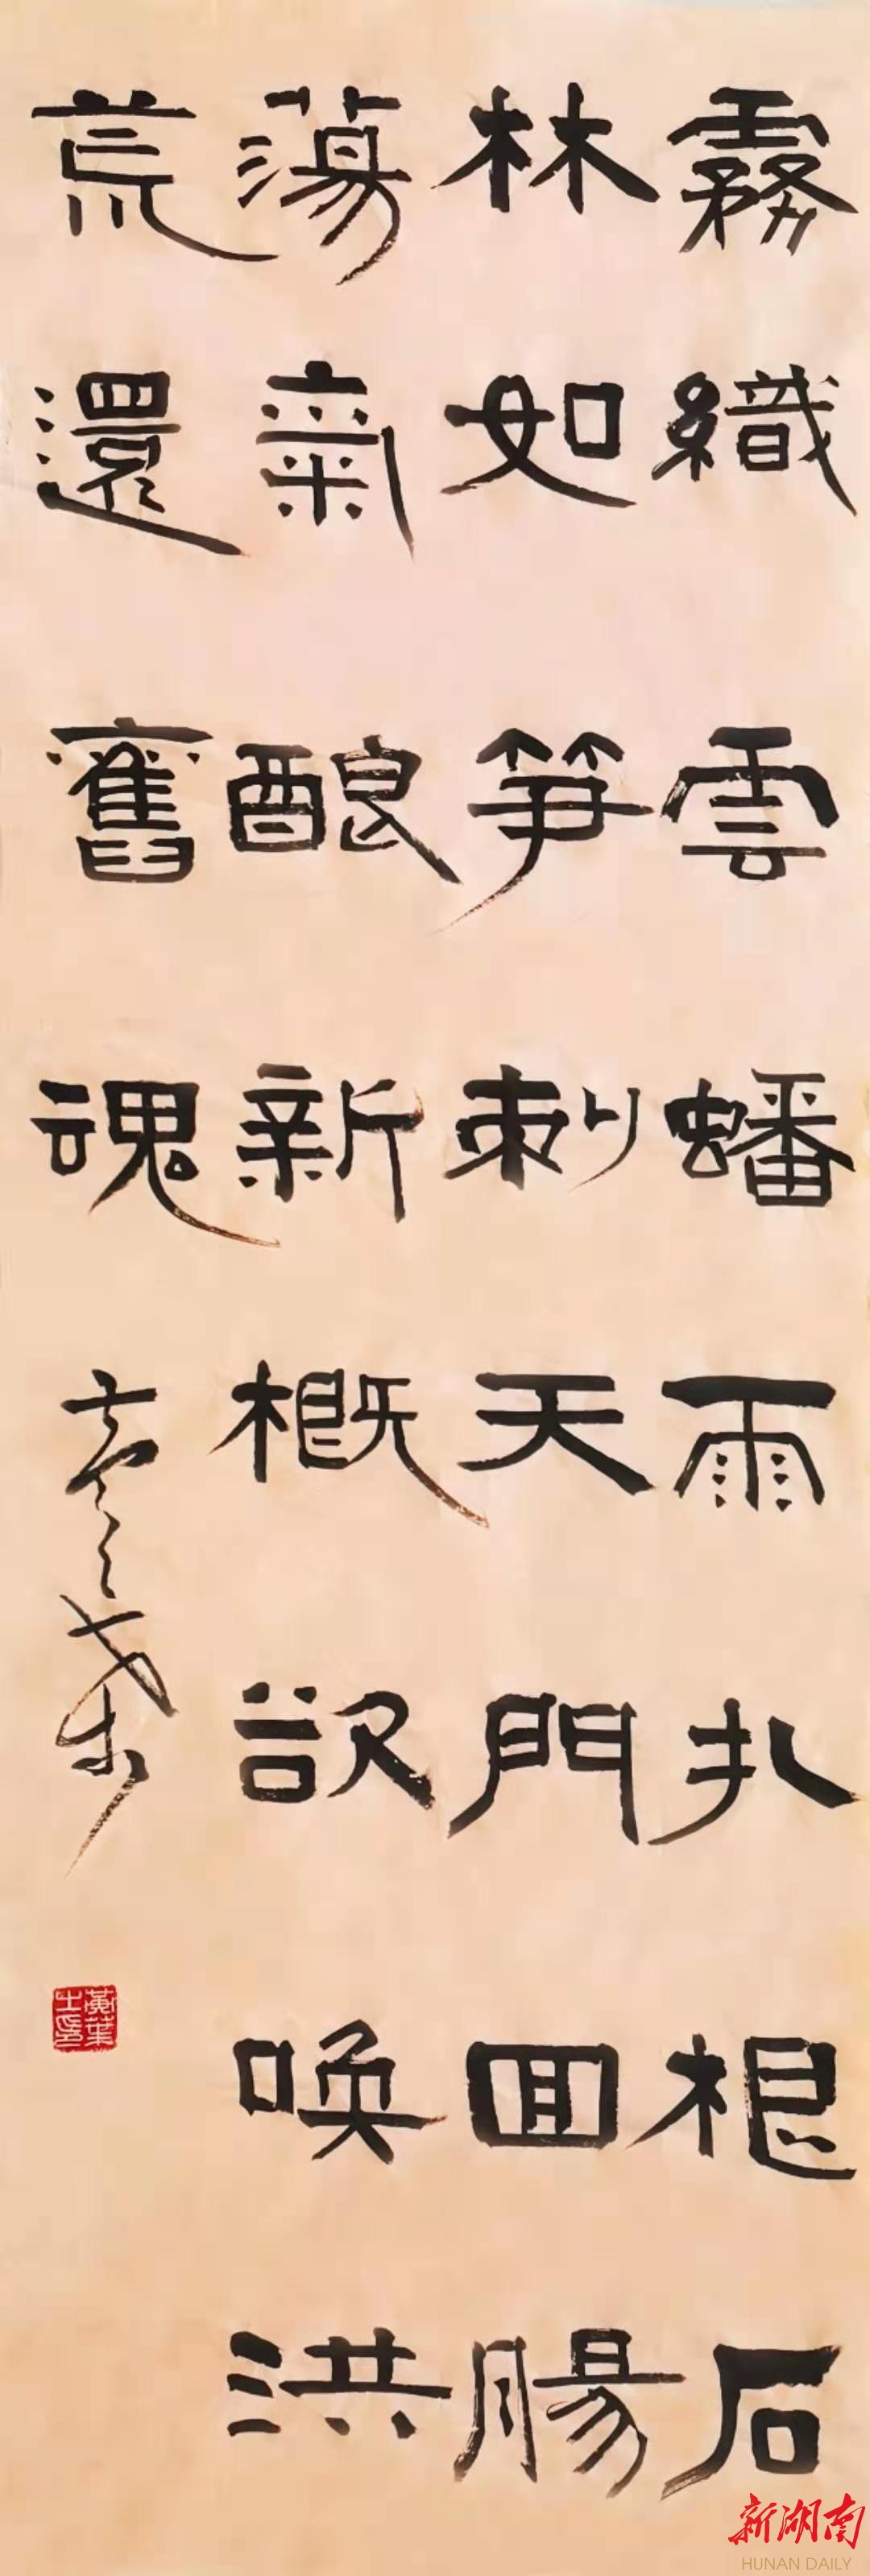 霧織雲蟠雨扎根石
林如筍刺天門回腸
蕩氣釀新概欲喚洪
荒還舊魂
黃葉
士印
新湖南
HUNAN DAILY